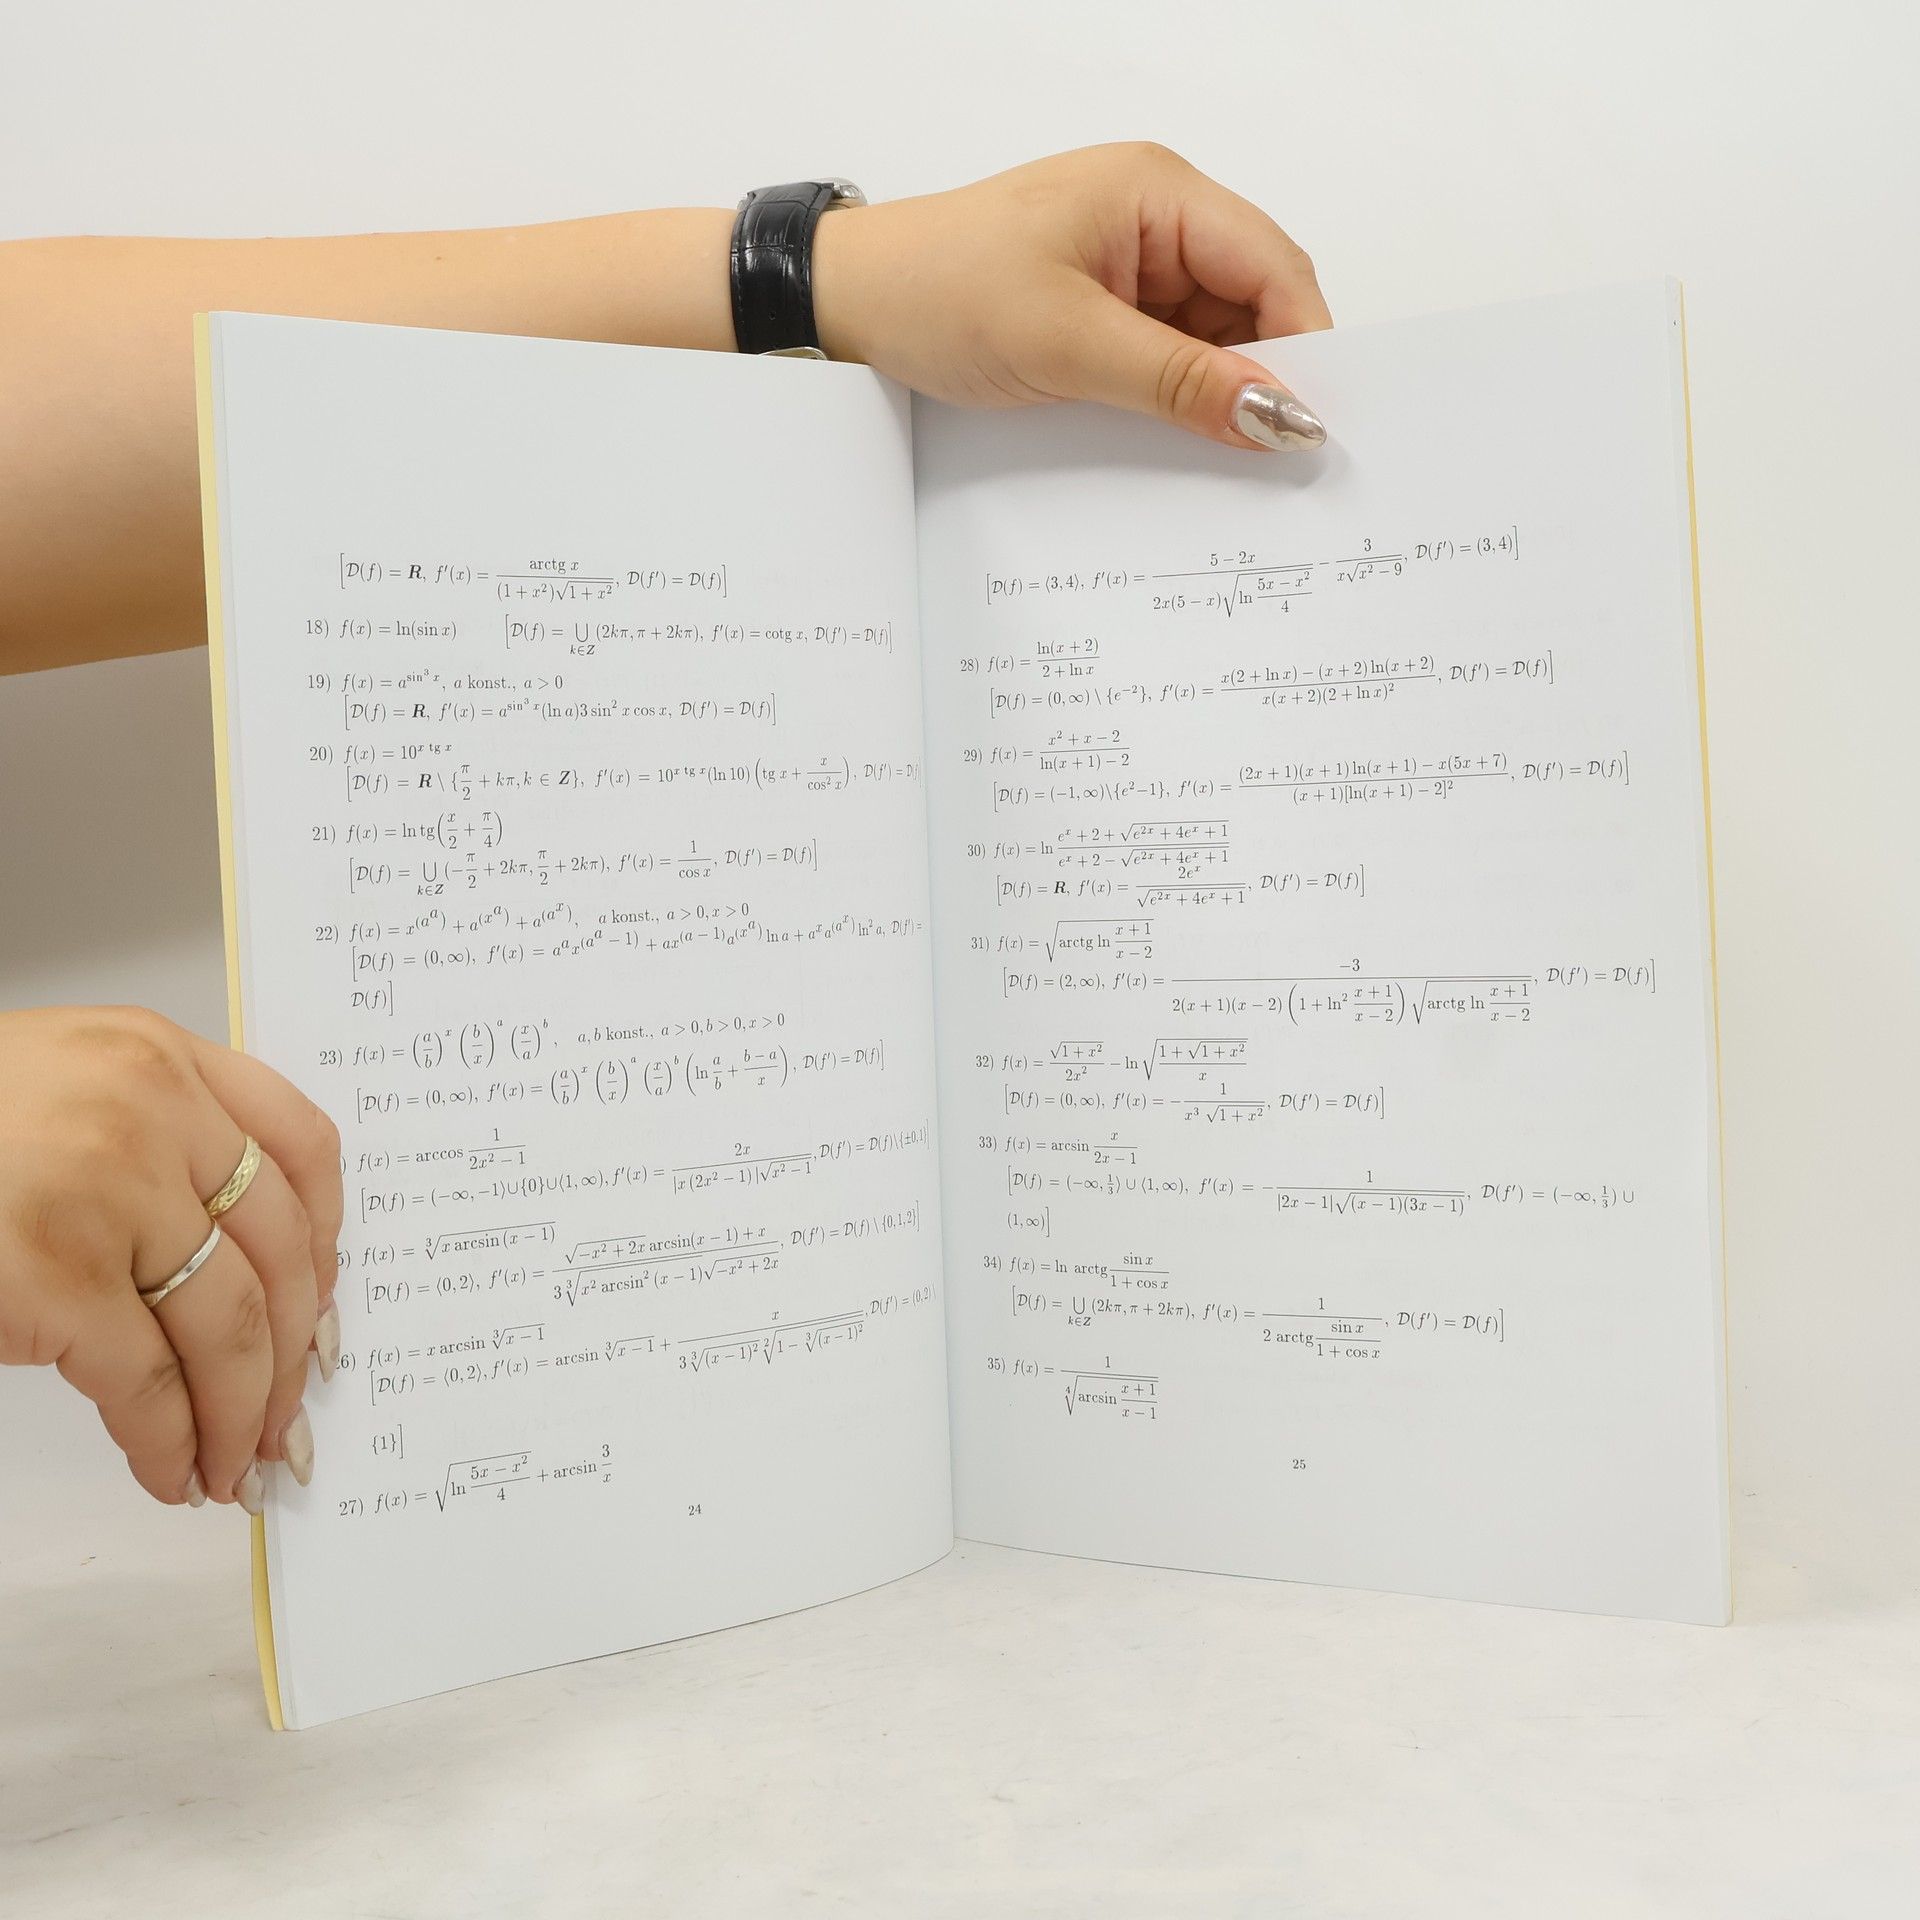 [D(f) = R, f′(x) = arctg x / ((1 + x²)√(1 + x²)), D(f′) = D(f)]
18) f(x) = ln(sin x) [D(f) = ⋃_{k∈Z} (2kπ, π + 2kπ), f′(x) = cotg x, D(f′) = D(f)]
19) f(x) = a^{sin³ x}, a konst., a > 0
[D(f) = R, f′(x) = a^{sin³ x}(ln a)3 sin² x cos x, D(f′) = D(f)]
20) f(x) = 10^{x tg x}
[D(f) = R \ {π/2 + kπ, k ∈ Z}, f′(x) = 10^{x tg x}(ln 10)(tg x + x/cos² x), D(f′) = D(f
21) f(x) = ln tg(x/2 + π/4)
[D(f) = ⋃_{k∈Z} (−π/2 + 2kπ, π/2 + 2kπ), f′(x) = 1/cos x, D(f′) = D(f)]
22) f(x) = x^{(a^a)} + a^{(x^a)} + a^{(a^x)}, a konst., a > 0, x > 0
[D(f) = (0, ∞), f′(x) = a^a x^{(a^a − 1)} + ax^{(a − 1)} a^{(x^a)} ln a + a^x a^{(a^x)} ln² a, D(f′) =
D(f)]
23) f(x) = (a/b)^x (b/x)^a (x/a)^b, a, b konst., a > 0, b > 0, x > 0
[D(f) = (0, ∞), f′(x) = (a/b)^x (b/x)^a (x/a)^b (ln a/b + (b − a)/x), D(f′) = D(f)]
) f(x) = arccos 1/(2x² − 1)
[D(f) = (−∞, −1⟩∪{0}∪⟨1, ∞), f′(x) = 2x/(|x (2x² − 1)|√(x² − 1)), D(f′) = D(f)\{±0, 1}]
5) f(x) = ∛(x arcsin (x − 1))
[D(f) = ⟨0, 2⟩, f′(x) = (√(−x² + 2x) arcsin(x − 1) + x)/(3 ∛(x² arcsin² (x − 1))√(−x² + 2x)), D(f′) = D(f) \ {0, 1, 2}]
26) f(x) = x arcsin ∛(x − 1)
[D(f) = ⟨0, 2⟩, f′(x) = arcsin ∛(x − 1) + x/(3 ∛((x − 1)²) ²√(1 − ∛((x − 1)²))), D(f′) = (0, 2) \
{1}]
27) f(x) = √(ln (5x − x²)/4) + arcsin 3/x
24
[D(f) = ⟨3, 4⟩, f′(x) = (5 − 2x)/(2x(5 − x)√(ln (5x − x²)/4)) − 3/(x√(x² − 9)), D(f′) = (3, 4)]
28) f(x) = ln(x + 2)/(2 + ln x)
[D(f) = (0, ∞) \ {e^{−2}}, f′(x) = (x(2 + ln x) − (x + 2) ln(x + 2))/(x(x + 2)(2 + ln x)²), D(f′) = D(f)]
29) f(x) = (x² + x − 2)/(ln(x + 1) − 2)
[D(f) = (−1, ∞)\{e²−1}, f′(x) = ((2x + 1)(x + 1) ln(x + 1) − x(5x + 7))/((x + 1)[ln(x + 1) − 2]²), D(f′) = D(f)]
30) f(x) = ln (e^x + 2 + √(e^{2x} + 4e^x + 1))/(e^x + 2 − √(e^{2x} + 4e^x + 1))
[D(f) = R, f′(x) = 2e^x/√(e^{2x} + 4e^x + 1), D(f′) = D(f)]
31) f(x) = √(arctg ln (x + 1)/(x − 2))
[D(f) = (2, ∞), f′(x) = −3/(2(x + 1)(x − 2)(1 + ln² (x + 1)/(x − 2))√(arctg ln (x + 1)/(x − 2))), D(f′) = D(f)]
32) f(x) = √(1 + x²)/(2x²) − ln √((1 + √(1 + x²))/x)
[D(f) = (0, ∞), f′(x) = −1/(x³ √(1 + x²)), D(f′) = D(f)]
33) f(x) = arcsin x/(2x − 1)
[D(f) = (−∞, 1/3⟩ ∪ ⟨1, ∞), f′(x) = −1/(|2x − 1|√((x − 1)(3x − 1))), D(f′) = (−∞, 1/3) ∪
(1, ∞)]
34) f(x) = ln arctg sin x/(1 + cos x)
[D(f) = ⋃_{k∈Z} (2kπ, π + 2kπ), f′(x) = 1/(2 arctg sin x/(1 + cos x)), D(f′) = D(f)]
35) f(x) = 1/∜(arcsin (x + 1)/(x − 1))
25